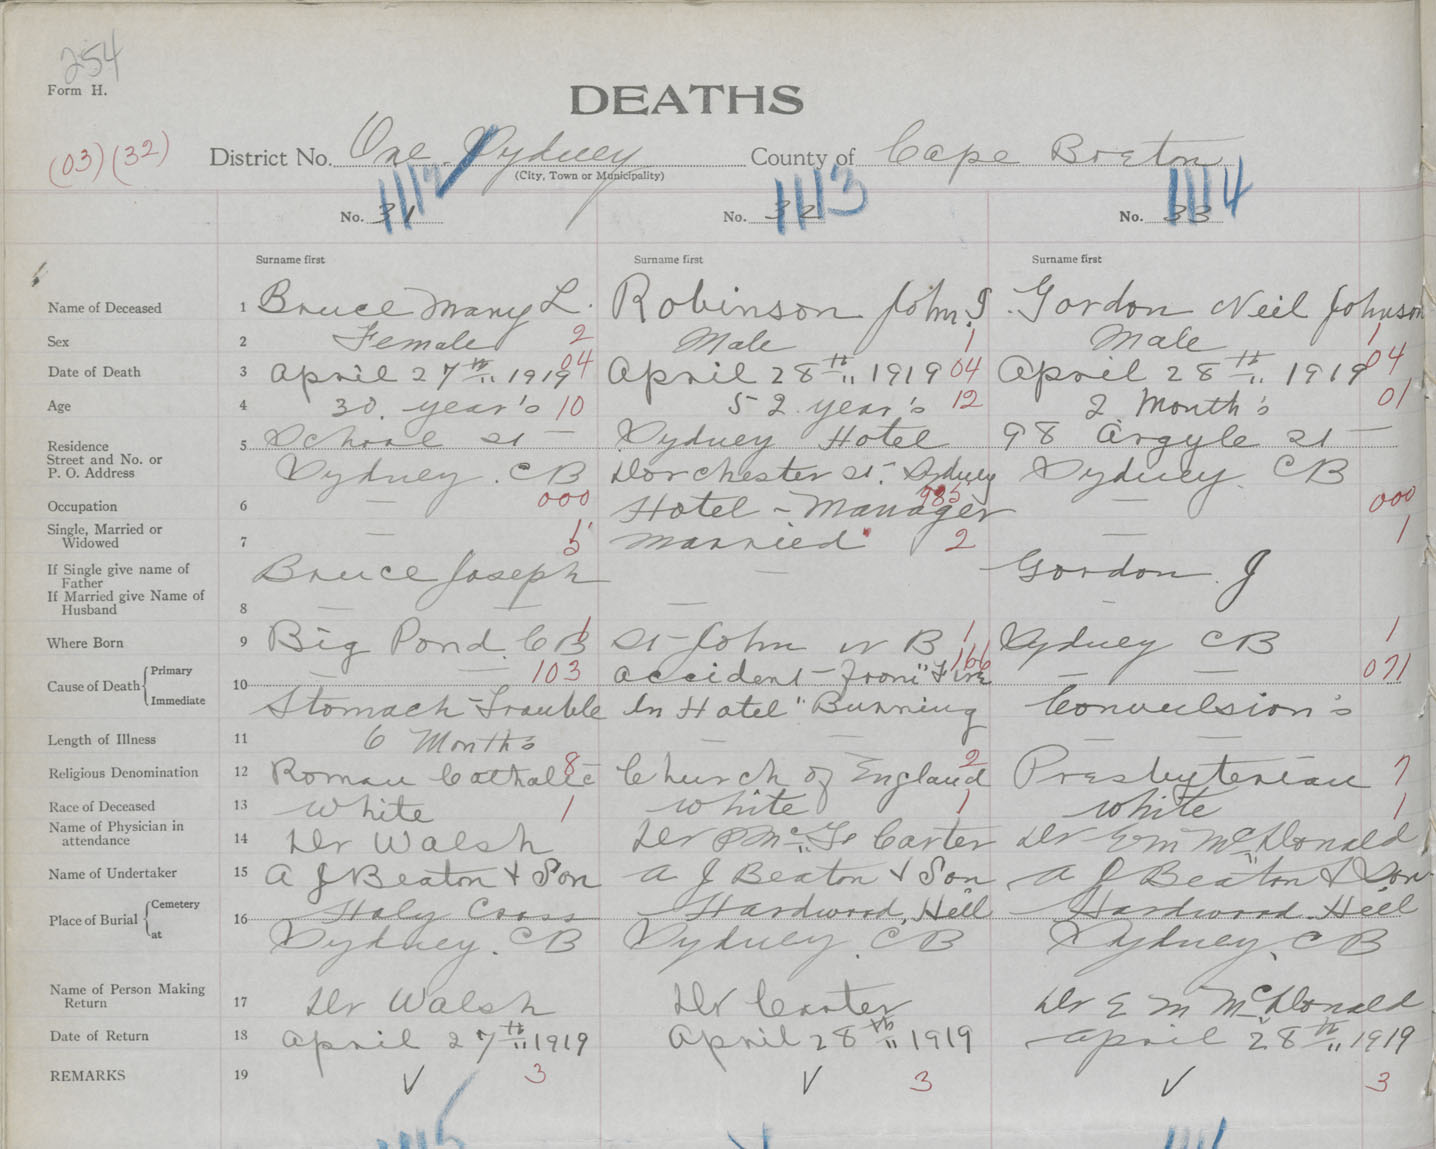 254
Form H.
DEATHS
(03) (32)
District No. One Sydney County of Cape Breton
(City, Town or Municipality)
1112 1113 1114
No. 31 No. 32 No. 33
Surname first Surname first Surname first
Name of Deceased 1 Bruce Mary L. Robinson John S Gordon Neil Johnson
Sex 2 Female 2 Male 1 Male 1
Date of Death 3 April 27th 1919 04 April 28th 1919 04 April 28th 1919 04
Age 4 30. year's 10 52 year's 12 2 Month's 01
Residence
Street and No. or
P. O. Address
5 School St Sydney Hotel 98 Argyle St
Sydney. CB Dorchester St. Sydney Sydney. CB
Occupation 6 — 000 Hotel - Manager 985 — 000
Single, Married or
Widowed
7 — 1 5 married 2 — 1
If Single give name of
Father
Bruce Joseph — Gordon J
If Married give Name of
Husband
8 — — —
Where Born 9 Big Pond. CB 1 St John N B 1 Sydney CB 1
Cause of Death Primary 10 — — 103 Accident - from "Fire 166 — — 071
Immediate Stomach Trouble In Hotel" Burning Convulsion's
Length of Illness 11 6 Month's — — — —
Religious Denomination 12 Roman Catholic 8 Church of England 2 Presbyterian 7
Race of Deceased 13 White 1 White 1 White 1
Name of Physician in
attendance
14 Dr Walsh Dr Carter Dr E M McDonald
Name of Undertaker 15 A J Beaton & Son A J Beaton & Son A J Beaton & Son
Place of Burial Cemetery 16 Holy Cross Hardwood Hill Hardwood Hill
at Sydney. CB Sydney. CB Sydney. CB
Name of Person Making
Return
17 Dr Walsh Dr Carter Dr E M McDonald
Date of Return 18 April 27th 1919 April 28th 1919 April 28th 1919
REMARKS 19 ✓ 3 ✓ 3 ✓ 3